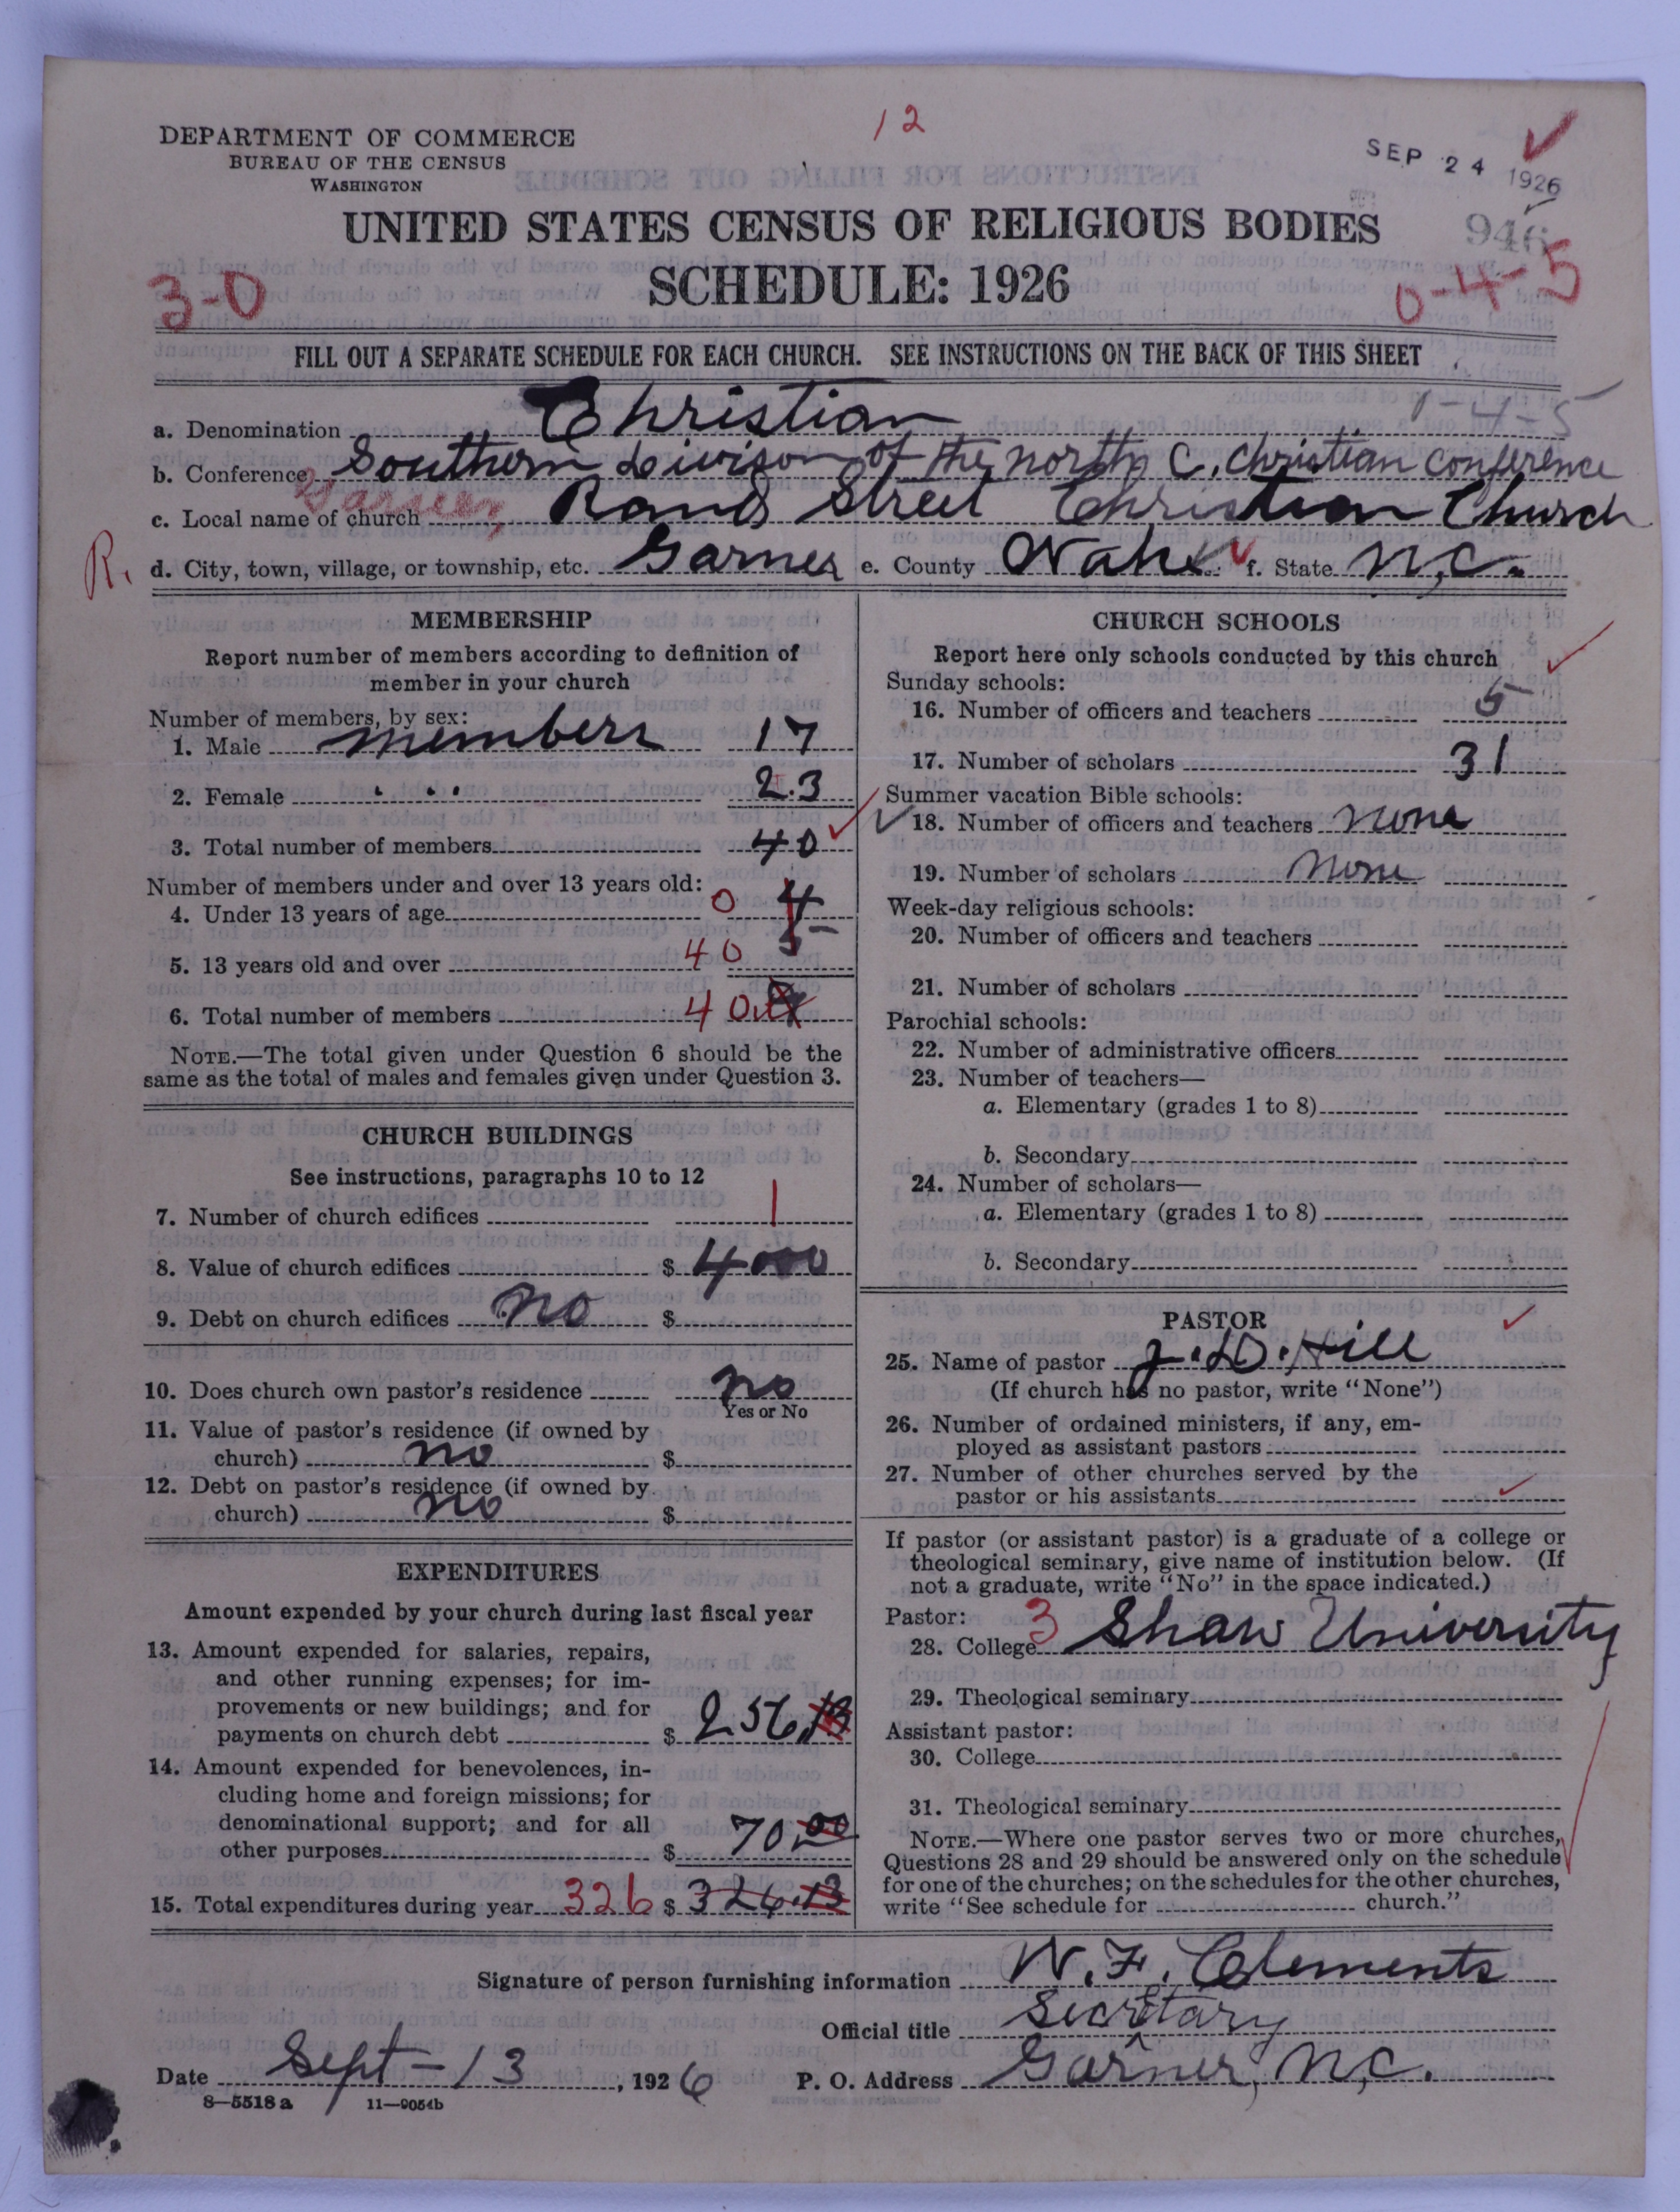 12
DEPARTMENT OF COMMERCE
BUREAU OF THE CENSUS
WASHINGTON
SEP 24 1926
UNITED STATES CENSUS OF RELIGIOUS BODIES
946
SCHEDULE: 1926
3-0
0-4-5
FILL OUT A SEPARATE SCHEDULE FOR EACH CHURCH. SEE INSTRUCTIONS ON THE BACK OF THIS SHEET
1-4-5
a. Denomination Christian
b. Conference Southern Divison of the north C. Christian conference
c. Local name of church Garner, Rand Street Christian Church
R. d. City, town, village, or township, etc. Garner e. County Wake f. State N.C.
MEMBERSHIP
Report number of members according to definition of
member in your church
Number of members, by sex:
1. Male members 17
2. Female 23
3. Total number of members 40
Number of members under and over 13 years old:
4. Under 13 years of age 0 4
5. 13 years old and over 40
6. Total number of members 40
NOTE.—The total given under Question 6 should be the
same as the total of males and females given under Question 3.
CHURCH BUILDINGS
See instructions, paragraphs 10 to 12
7. Number of church edifices 1
8. Value of church edifices $ 4000
9. Debt on church edifices no $
10. Does church own pastor's residence no
Yes or No
11. Value of pastor's residence (if owned by
church) no $
12. Debt on pastor's residence (if owned by
church) no $
EXPENDITURES
Amount expended by your church during last fiscal year
13. Amount expended for salaries, repairs,
and other running expenses; for im-
provements or new buildings; and for
payments on church debt $ 256.13
14. Amount expended for benevolences, in-
cluding home and foreign missions; for
denominational support; and for all
other purposes $ 70.00
15. Total expenditures during year 326 $ 326.13
CHURCH SCHOOLS
Report here only schools conducted by this church
Sunday schools:
16. Number of officers and teachers 5
17. Number of scholars 31
Summer vacation Bible schools:
18. Number of officers and teachers none
19. Number of scholars none
Week-day religious schools:
20. Number of officers and teachers
21. Number of scholars
Parochial schools:
22. Number of administrative officers
23. Number of teachers—
a. Elementary (grades 1 to 8)
b. Secondary
24. Number of scholars—
a. Elementary (grades 1 to 8)
b. Secondary
PASTOR
25. Name of pastor J. D. Hill
(If church has no pastor, write "None")
26. Number of ordained ministers, if any, em-
ployed as assistant pastors
27. Number of other churches served by the
pastor or his assistants
If pastor (or assistant pastor) is a graduate of a college or
theological seminary, give name of institution below. (If
not a graduate, write "No" in the space indicated.)
Pastor:
28. College 3 Shaw University
29. Theological seminary
Assistant pastor:
30. College
31. Theological seminary
NOTE.—Where one pastor serves two or more churches,
Questions 28 and 29 should be answered only on the schedule
for one of the churches; on the schedules for the other churches,
write "See schedule for church."
Signature of person furnishing information W. F. Clements
Official title Secretary
Date Sept-13, 1926 P. O. Address Garner, N.C.
8-5518 a 11-9054b